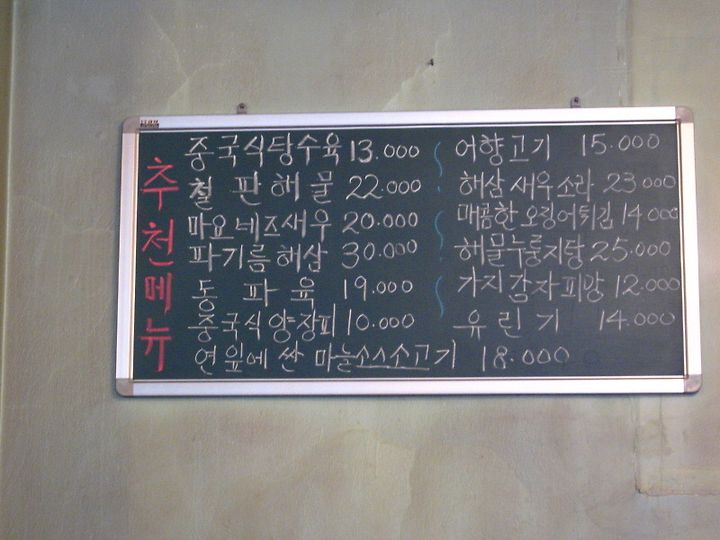 추천메뉴
중국식탕수육 13.000
철판해물 22.000
마요네즈새우 20.000
파기름해삼 30.000
동파육 19.000
중국식양장피 10.000
연잎에 싼 마늘소스소고기 18.000
어향고기 15.000
해삼새우소라 23000
매콤한 오징어튀김 14.000
해물누룽지탕 25.000
가지감자피망 12.000
유린기 14.000